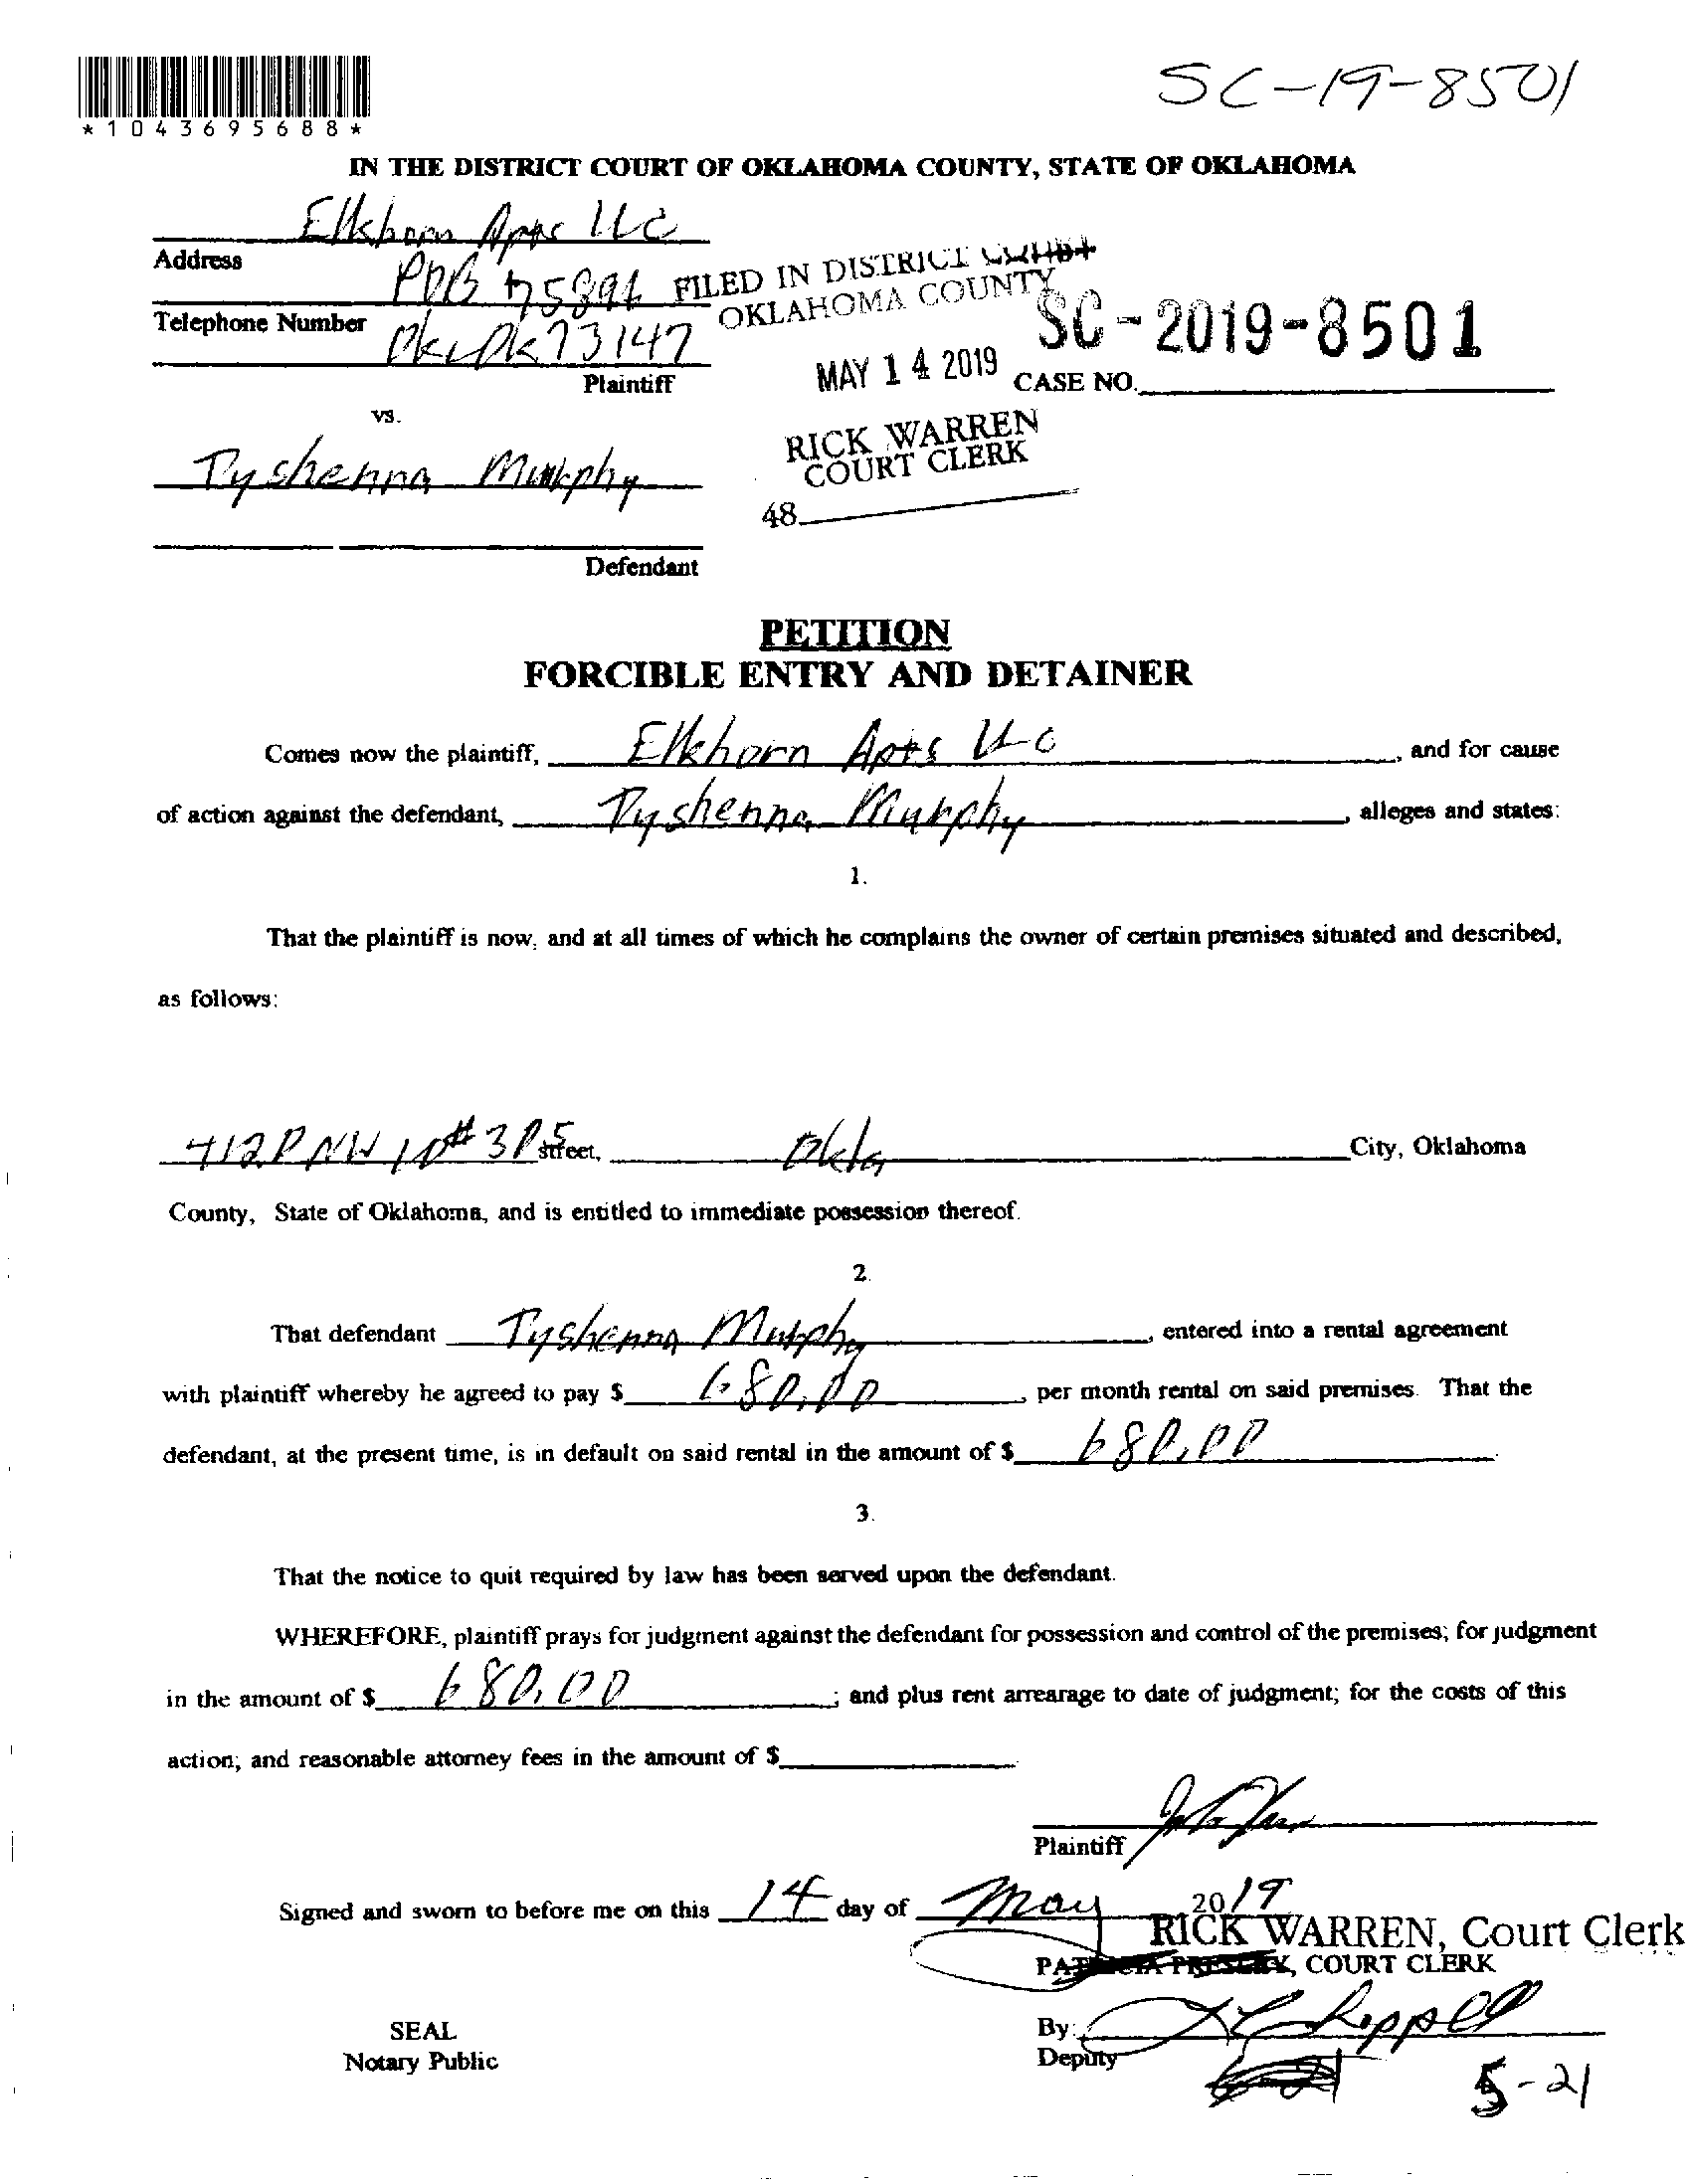 *1043695688*
SC-19-8501
IN THE DISTRICT COURT OF OKLAHOMA COUNTY, STATE OF OKLAHOMA
Elkhorn Apts LLC
Address
POB 75896
FILED IN DISTRICT COURT
OKLAHOMA COUNTY
Telephone Number
73147
SC-2019-8501
Plaintiff
MAY 14 2019
CASE NO.
vs.
RICK WARREN
COURT CLERK
Tyshenna Murphy
48
Defendant
PETITION
FORCIBLE ENTRY AND DETAINER
Comes now the plaintiff, Elkhorn Apts LLC, and for cause
of action against the defendant, Tyshenna Murphy, alleges and states:
1.
That the plaintiff is now, and at all times of which he complains the owner of certain premises situated and described,
as follows:
4120 NW 10 # 305 street, Okla City, Oklahoma
County, State of Oklahoma, and is entitled to immediate possession thereof.
2.
That defendant Tyshenna Murphy, entered into a rental agreement
with plaintiff whereby he agreed to pay $ 680.00, per month rental on said premises. That the
defendant, at the present time, is in default on said rental in the amount of $ 680.00.
3.
That the notice to quit required by law has been served upon the defendant.
WHEREFORE, plaintiff prays for judgment against the defendant for possession and control of the premises; for judgment
in the amount of $ 680.00; and plus rent arrearage to date of judgment; for the costs of this
action; and reasonable attorney fees in the amount of $.
Plaintiff
Signed and sworn to before me on this 14 day of May 2019
RICK WARREN, Court Clerk
PATRICIA PRESLEY, COURT CLERK
SEAL
By:
Notary Public
Deputy
5-21